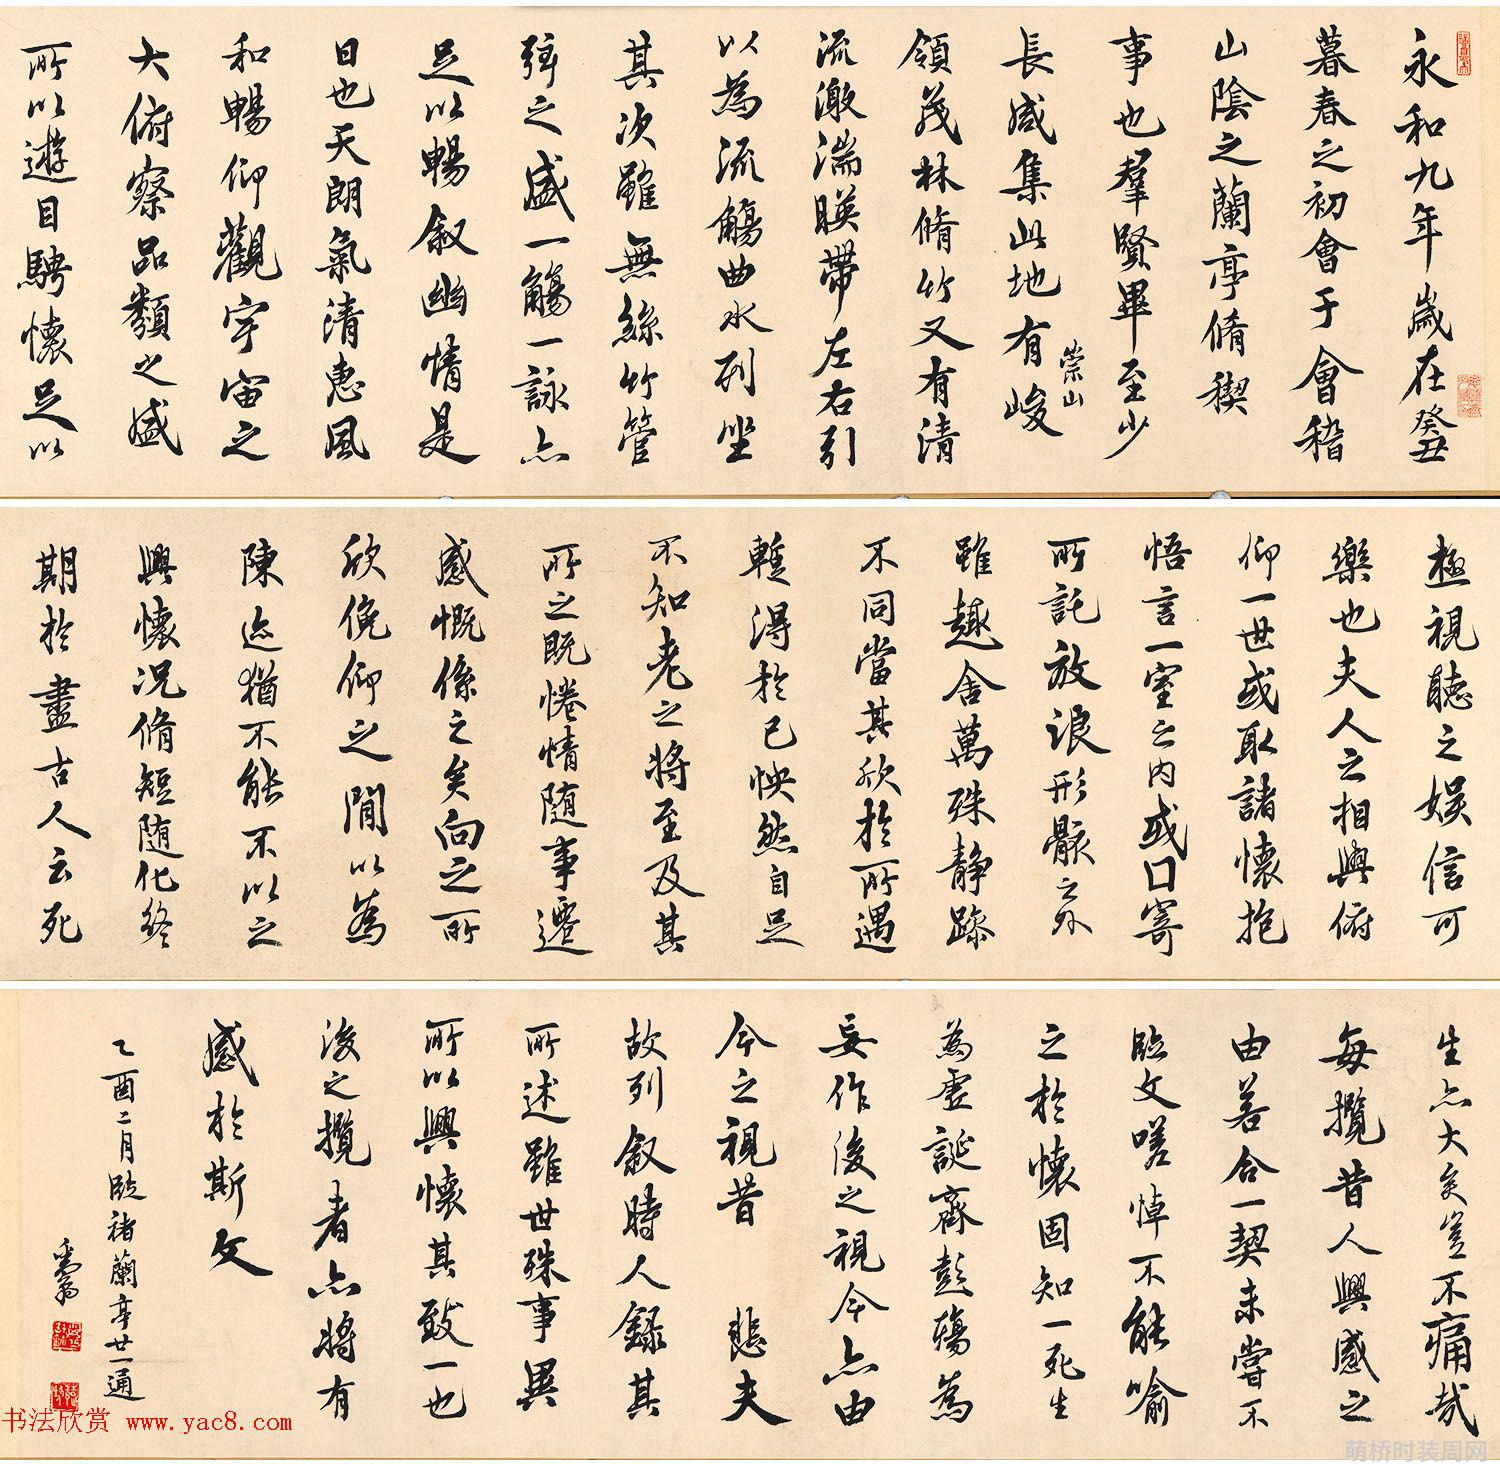 永和九年歲在癸丑
暮春之初會于會稽
山陰之蘭亭脩稧
事也羣賢畢至少
長咸集此地有峻
崇山
領茂林脩竹又有清
流激湍暎帶左右引
以為流觴曲水列坐
其次雖無絲竹管
弦之盛一觴一詠亦
足以暢叙幽情是
日也天朗氣清惠風
和暢仰觀宇宙之
大俯察品類之盛
所以遊目騁懷足以
極視聽之娛信可
樂也夫人之相與俯
仰一世或取諸懷抱
悟言一室之内或因寄
所託放浪形骸之外
雖趣舍萬殊静躁
不同當其欣於所遇
暫得於己怏然自足
不知老之將至及其
所之既惓情随事遷
感慨係之矣向之所
欣俛仰之間以為
陳迹猶不能不以之
興懷况脩短随化終
期於盡古人云死
生亦大矣豈不痛哉
每攬昔人興感之
由若合一契未嘗不
臨文嗟悼不能喻
之於懷固知一死生
為虛誕齊彭殤為
妄作後之視今亦由
今之視昔 悲夫
故列叙時人録其
所述雖世殊事異
所以興懷其致一也
後之攬者亦將有
感於斯文
乙酉二月臨褚蘭亭廿一通
书法欣赏 www.yac8.com
萌桥时装周网